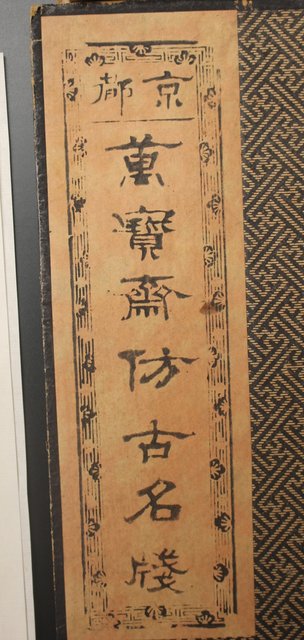 京都
萬寶齋仿古名牋